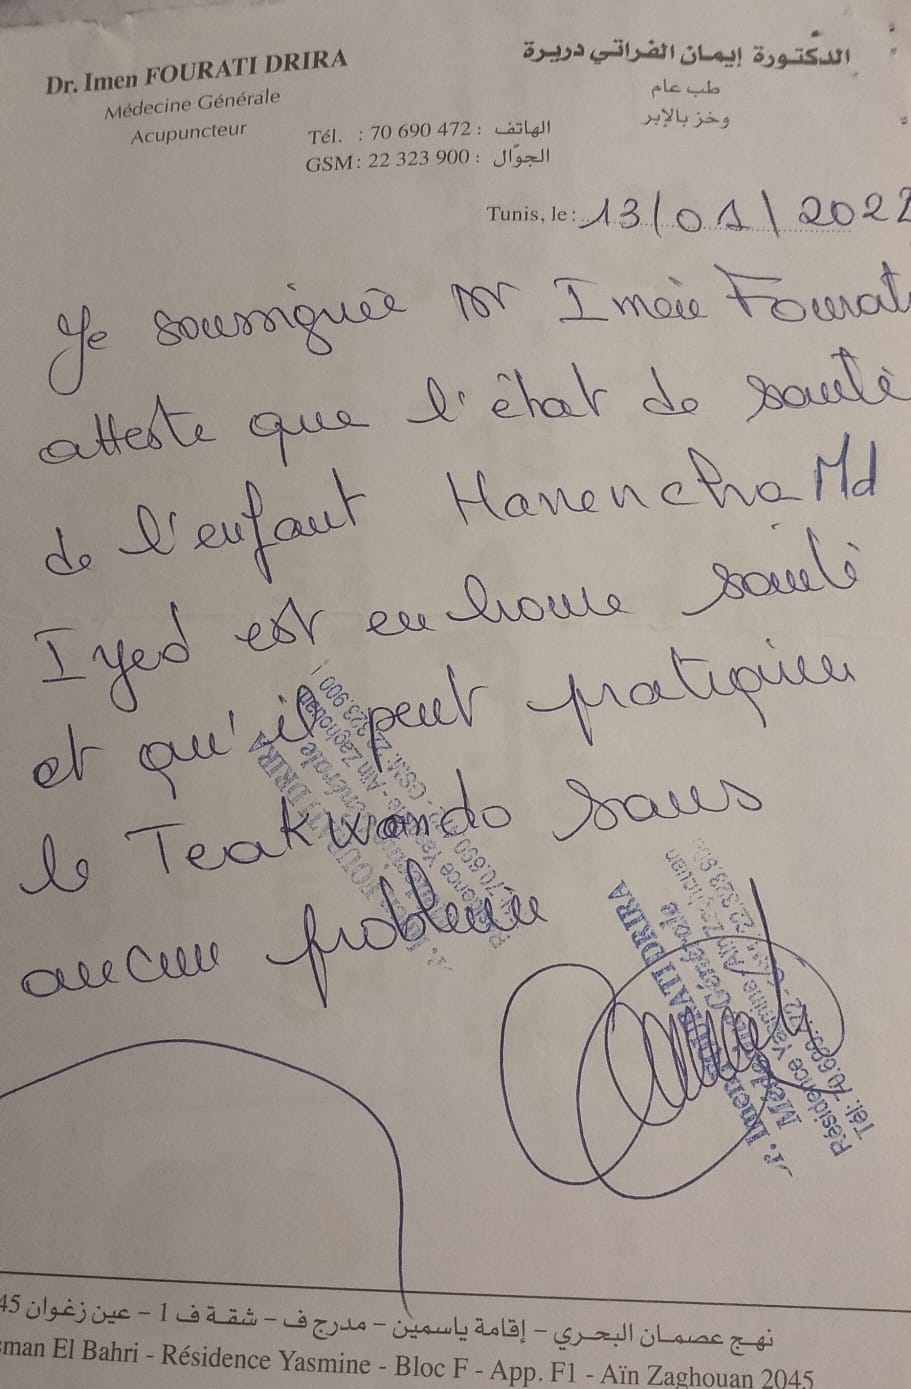 Dr. Imen FOURATI DRIRA
Médecine Générale
Acupuncteur
الدكتورة إيمان الفراتي دريرة
طب عام
وخز بالإبر
Tél. : 70 690 472 : الهاتف
GSM : 22 323 900 : الجوّال
Tunis, le : 13/01/2022
Je soussignée Dr Imen Fourati
atteste que l'état de santé
de l'enfant Hanencha Md
Iyed est en bonne santé
et qu'il peut pratiquer
le Teakwando sans
aucun problème
نهج عصمان البحري - إقامة ياسمين - مدرج ف - شقة ف 1 - عين زغوان 45
man El Bahri - Résidence Yasmine - Bloc F - App. F1 - Aïn Zaghouan 2045